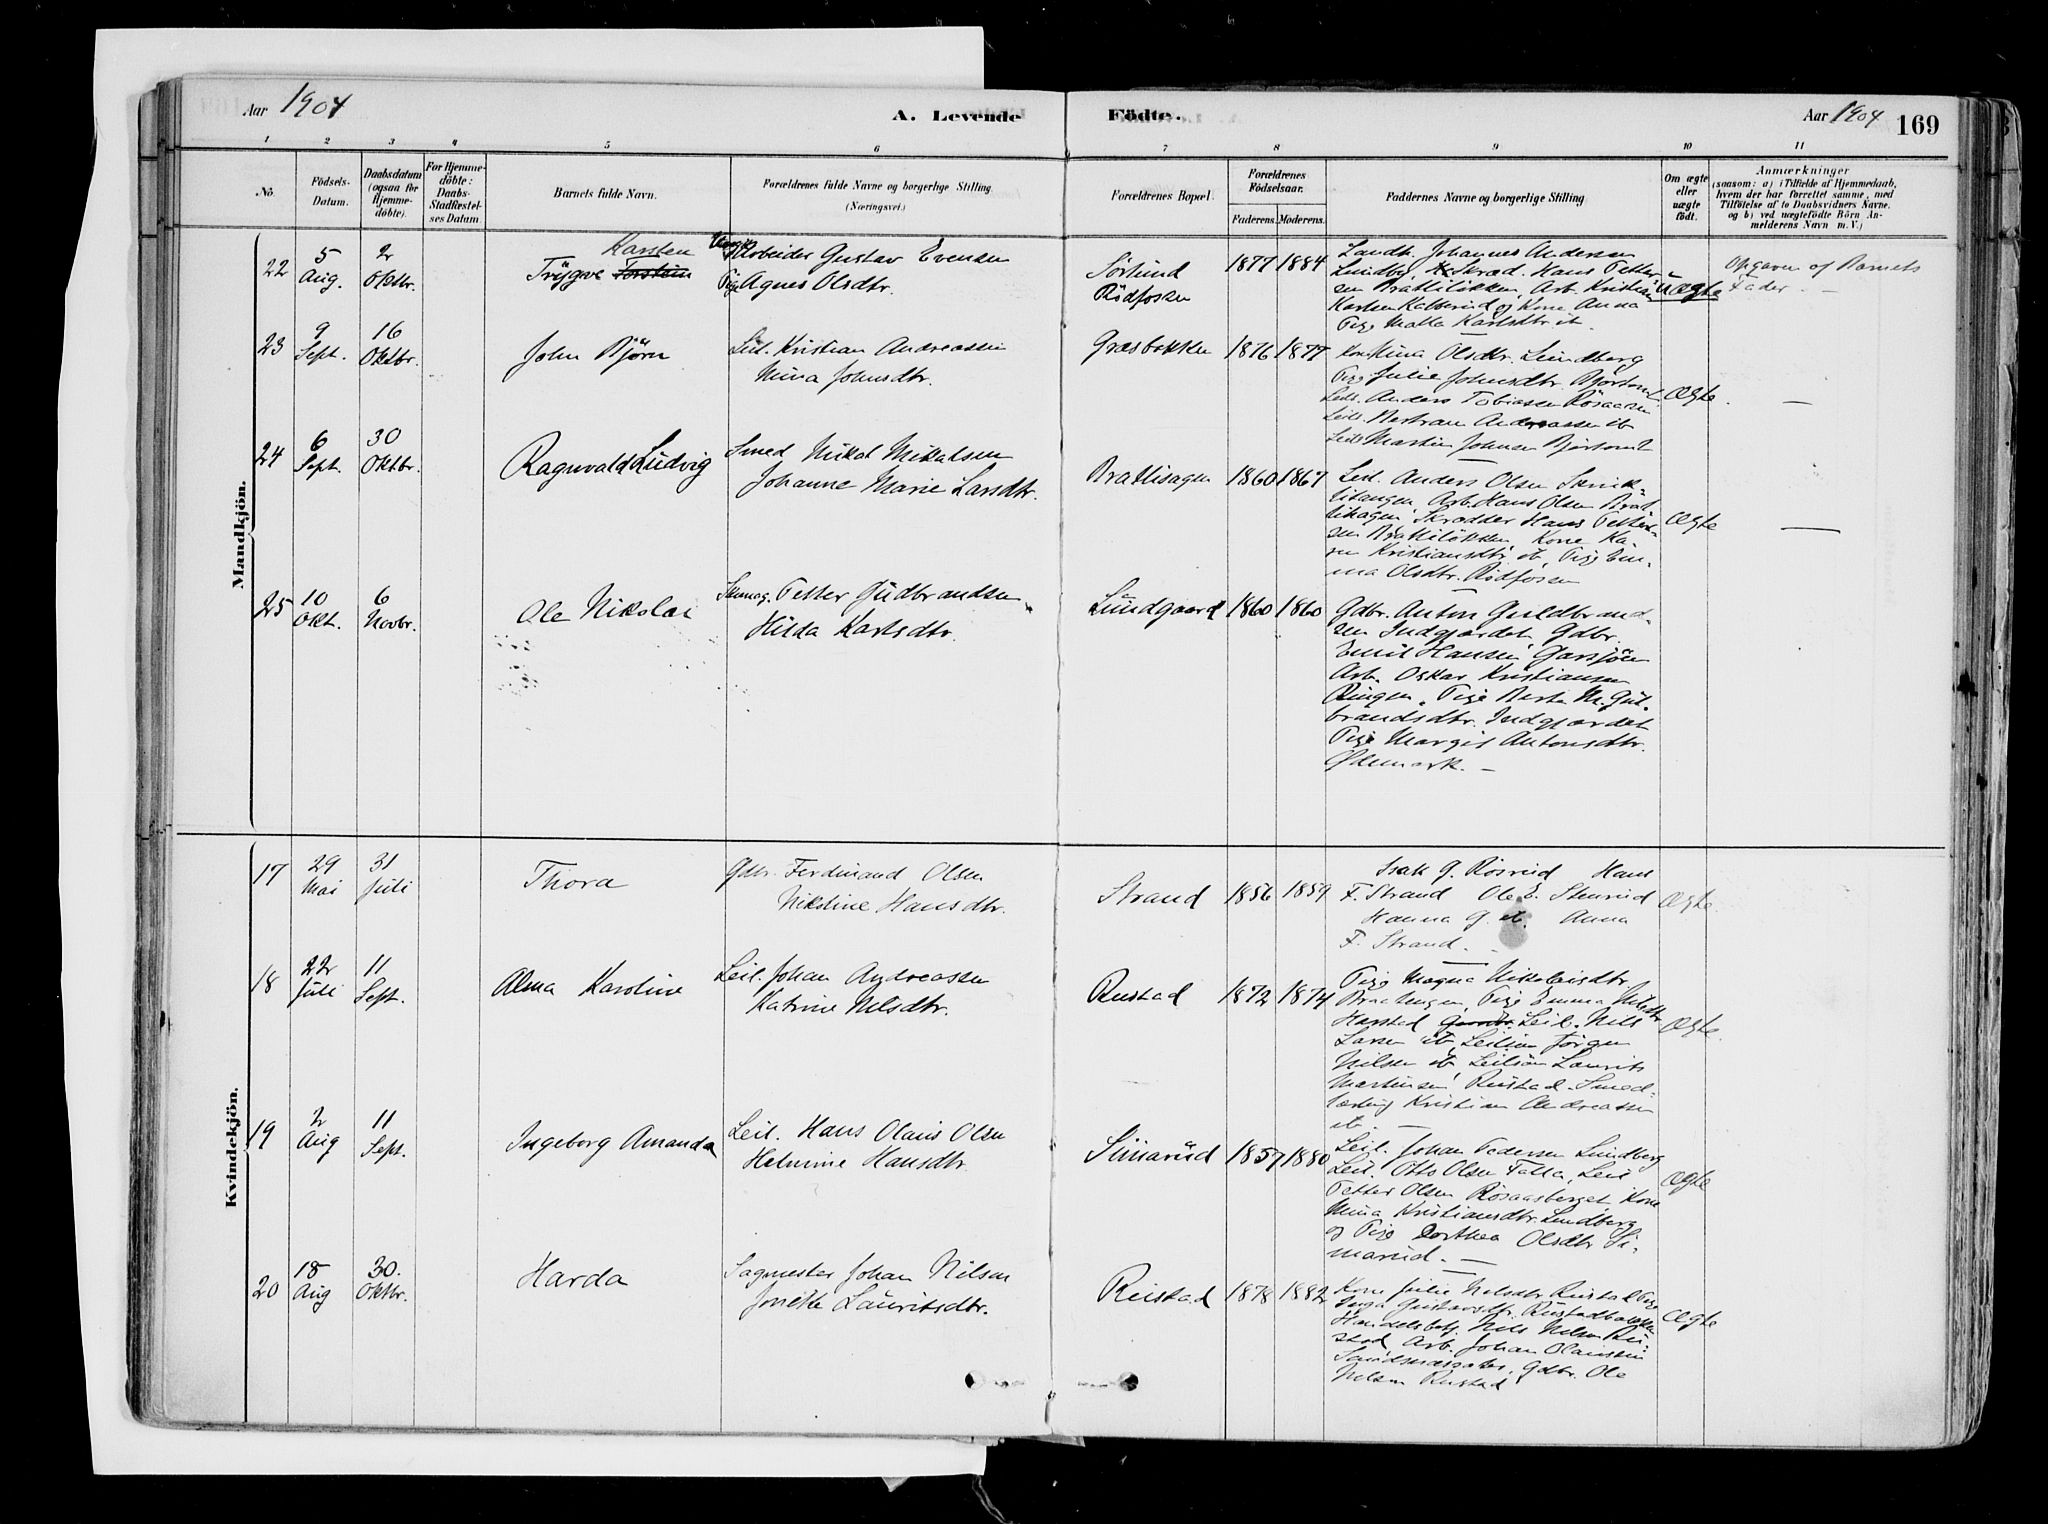 Aar 1904
A. Levende
Födte.
Aar 1904
169
1 2 3 4 5 6 7 8 9 10 11
No.
Födsels-
Datum.
Daabsdatum
(ogsaa for
Hjemme-
döbte).
For Hjemme-
döbte:
Daabs-
Stadfæstel-
ses Datum
Barnets fulde Navn.
Forældrenes fulde Navne og borgerlige Stilling.
(Næringsvei.)
Forældrenes Bopæl.
Forældrenes
Födselsaar.
Faderens. Moderens.
Faddernes Navne og borgerlige Stilling.
Om ægte
eller
uægte
födt.
Anmærkninger
(saasom: a) i Tilfælde af Hjemmedaab,
hvem der har forrettet samme, med
Tilföielse af to Daabsvidners Navne.
og b) ved uægtefödte Börn An-
melderens Navn m.V.)
Mandkjön.
22
5
Aug.
2
Oktbr.
Karsten
Trygve Torstein
Arbeider Gustav Evensen
Pige Agnes Olsdtr.
Sörlund
Rödfossen
1877 1884
Landh. Johannes Andersen
Lundby, Skræd. Hans Petter-
sen Brattilökken, Arb. Kristian
Karlsen og Kone Anna
Pige Karlsdtr. ib.
uægte
Opgaven af Barnets
Fader. —
23
9
Sept.
16
Oktbr.
John Björn
Leil. Kristian Andreassen
Mina Johnsdtr.
Græsbakken
1876 1877
Kone Mina Olsdtr. Lundberg
Pige Julie Johnsdtr.
Leil. Anders Tobiassen Rösaasen
Leils. Andreassen ib
Leils Martin Johnsen
Ægte.
—
24
6
Sept.
30
Oktbr.
Ragnvald Ludvig
Smed Nikol Mikalsen
Johanne Marie Larsdtr.
Brattlihagen
1860 1867
Leil. Anders Olsen
Arb. Hans Olsen Brat-
lihagen, Skrædder Hans Petter-
sen Brattilökken, Kone Ka-
ren Kristiansdtr. ib, Pige Em-
ma Olsdtr. Rödfossen
Ægte
—
25
10
Okt.
6
Novbr.
Ole Nikolai
Skomag. Petter Gudbrandsen
Hilda Karlsdtr.
Lundgaard
1860 1860
Gdbr. Anton Guldbrand-
sen Indgjærdet, Gdbr.
Emil Hansen, Garsjöen
Arb. Oskar Kristiansen
Ringen. Pige Berte M. Gul-
brandsdtr. Indgjærdet
Pige Margit Antonsdtr.
Ödemark. —
Kvindekjön.
17
29
Mai
31
Juli
Thora
Gdbr. Ferdinand Olsen
Nikoline Hansdtr.
Strand
1856 1859
Isak G. Rösrud Hans
F. Strand Ole E. Stenrud
Hanna G. ib. Anna
F. Strand. —
Ægte.
18
22
Juli
11
Sept.
Alma Karoline
Leil. Johan Andreassen
Katrine Nilsdtr.
Rustad
1872 1874
Pige Magna Nikolaisdtr.
Braatengen, Pige Emma Nilsdtr.
Harstad Leil. Nils
Larsen ib, Leilsön Jörgen
Nilsen ib, Leilsön Laurits
Martinsen, Rustad. Smed-
lærling Kristian Andreassen
ib. —
Ægte.
19
2
Aug
11
Sept.
Ingeborg Amanda
Leil. Hans Olaus Olsen
Helmine Hansdtr.
Simarud
1857 1880
Leil. Johan Pedersen Lundberg
Leil. Otto Olsen Talla, Leil
Petter Olsen Rösaasberget, Kone
Mina Kristiansdtr. Lundberg
og Pige Dorthea Olsdtr. Si-
marud. —
Ægte
20
18
Aug
30.
Oktbr.
Harda
Sagmester Johan Nilsen
Josette Lauritsdtr.
Rustad
1878 1882
Kone Julie Nilsdtr. Rustad Pige
Inga Gustavsdtr. Rustadbakken
Handelsbetj. Nils Nilsen Ru-
stad Arb. Johan Olaussen
Gdbr. Ole
Nilsen Rustad
Ægte